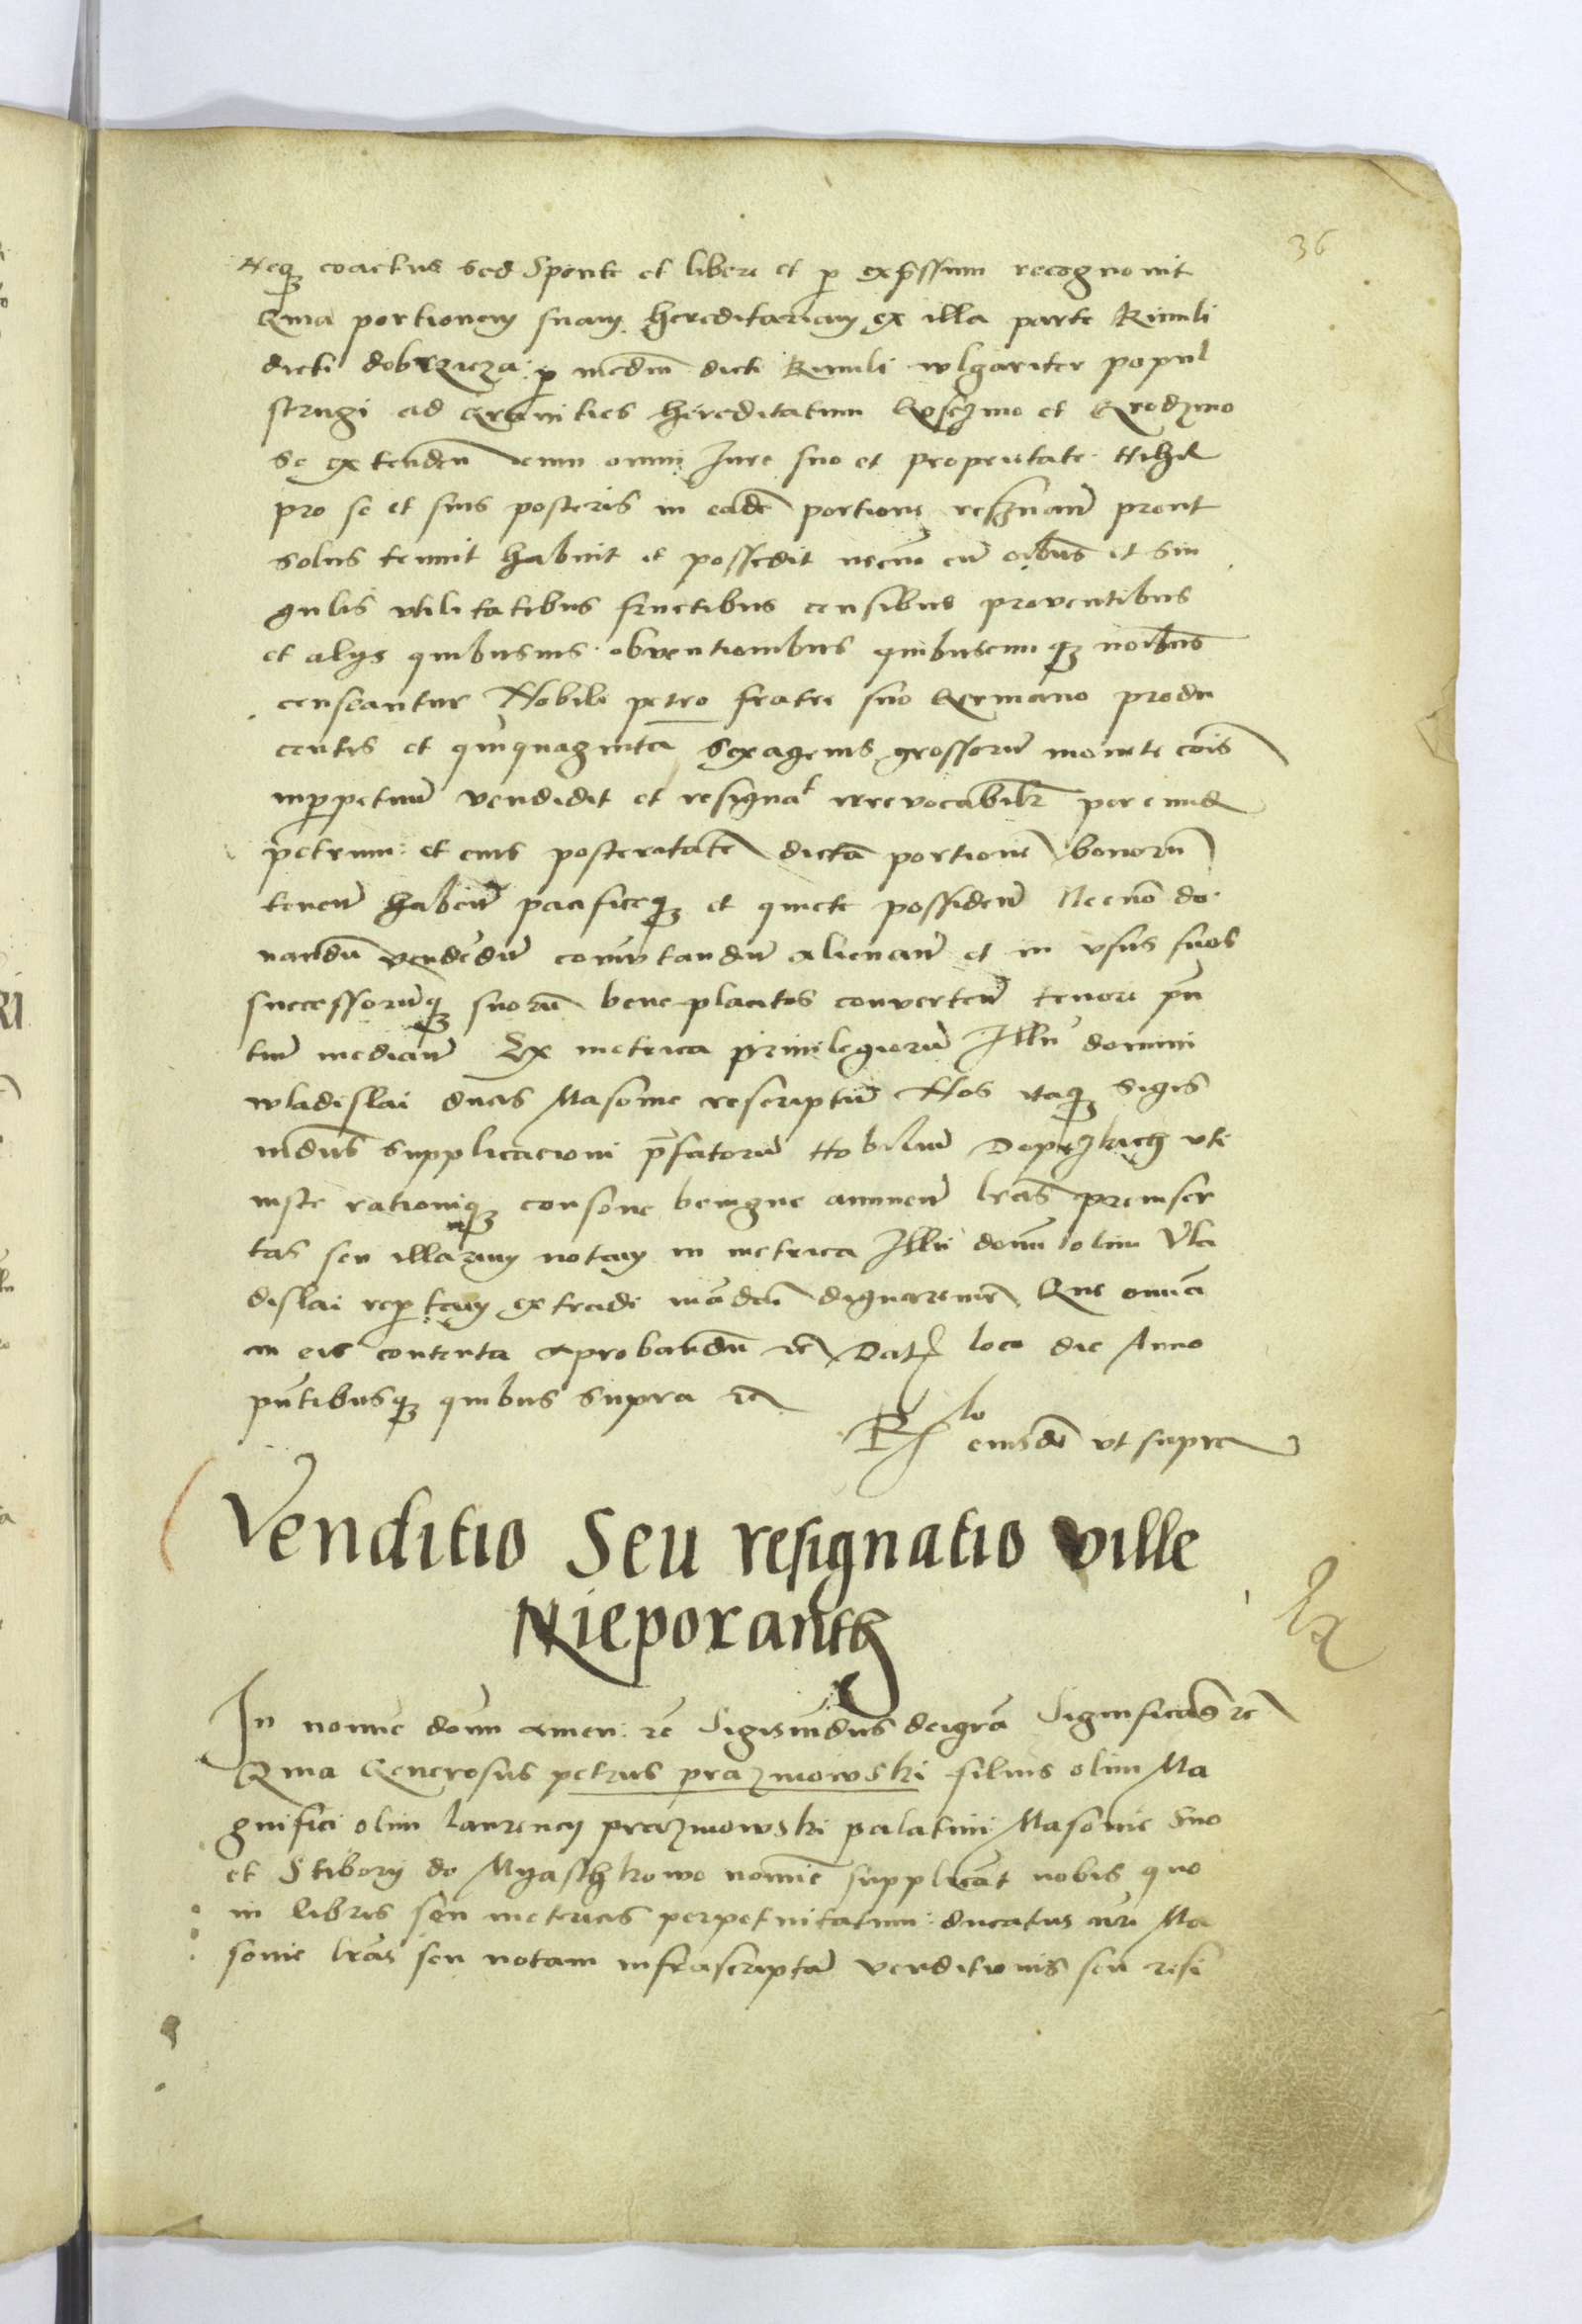 36
Neq₃ coactus sed Sponte et libere et p exp̄ssum recognouit
Quia portionem suam hereditariam ex illa parte Riuuli
dicti dobrzicza p mediū dicti Riuuli wlgariter popul
strugi ad Granities hereditatum et Grodzino
se extendeñ cum omni Jure suo et proprietate Nihil
pro se et suis posteris in eadē portione reseruañ prout
solus tenuit habuit et possedit necnō cū oibus et sin
gulis vtilitatibus fructibus censibus prouentibus
et alijs quibusuis obuentionibus quibuscunq₃ noībus
censeantur Nobili petro fratri suo Germano produ
centis et quinquaginta Sexagenis grossorū monete cōis
inp̄petuum vendidit et resignat irreuocabilr̄ per eund
petrum et eius posteritatē dictā portionē bonorū
teneñ habeñ pacificeq₃ et quiete possideñ Necnō do
nandū vendēdū comutandū alienañ et in vsus suos
successorūq₃ suorū beneplacitos conuerteñ tenore p̄n
tiū mediañ Ex metrica priuilegiorū Illu domini
wladislai ducis Masouie rescriptū Nos itaq₃ Sigis
mūdus supplicacioni p̄fatorū Nobiliū vti
iuste rationiq₃ consone benigne annueñ lrās preinser
tas seu illarum notam in metrica Illu domī olim Vla
dislai rep̄tam extradi mādaui Que omīa
in eis contenta aprobandū ꝛc Dat loco die Anno
pn̄tibusq₃ quibus supra ꝛc
Rlo eiusdē vt supra
Venditio Seu resignatio ville
Nieporanth
In nomine domī amen ꝛc Sigismūdus deigrā Significās ꝛc
Quia Generosus petrus prazmowski filius olim Ma
gnifici olim laurencij prazmowski palatini Masouie Suo
et Stiborij de Myaschkowo nomīe supplicāt nobis quo
in libris seu metricis perpetuitatum ducatus nri Ma
souie lrās seu notam infrascriptā venditionis seu resi